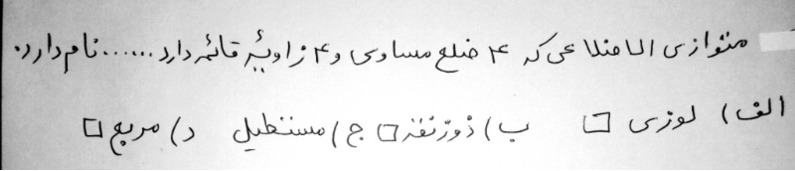 متوازی الاضلاعی که ۴ ضلع مساوی و ۴ زاویهٔ قائمه دارد ...... نام دارد.
الف) لوزی □ ب) ذوزنقه □ ج) مستطیل د) مربع □